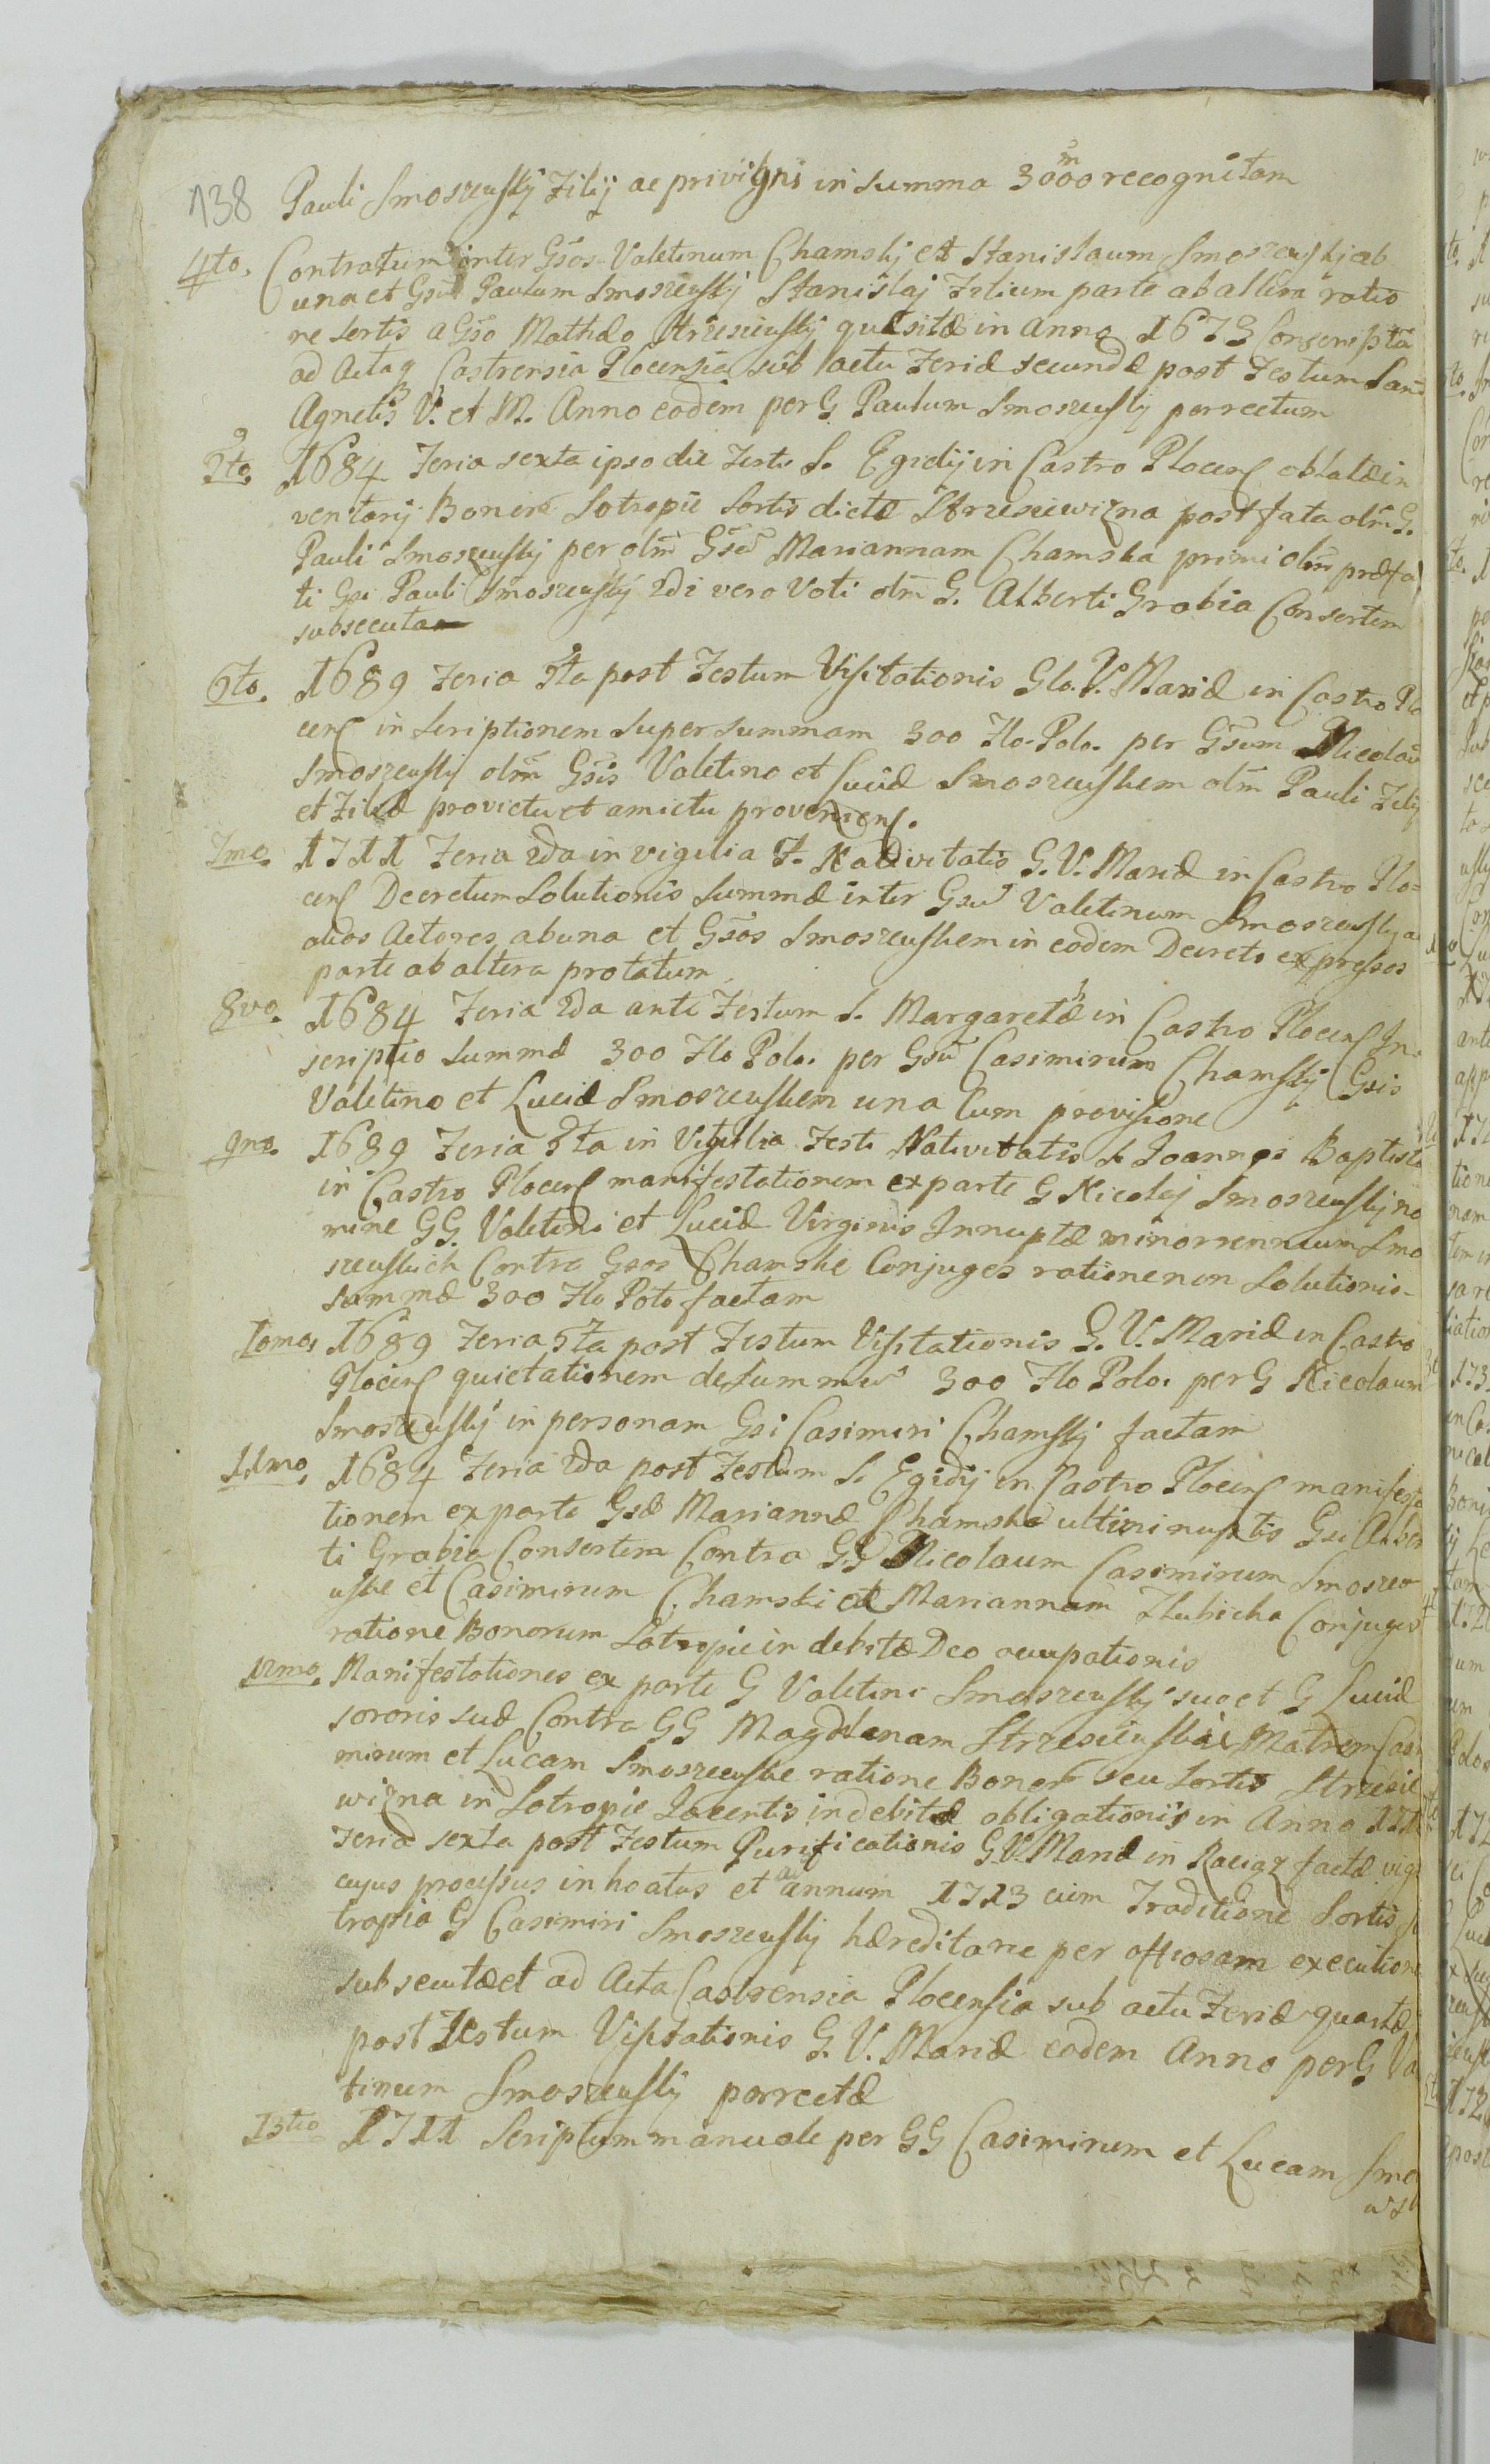 138 Pauli Smoszewskij Filij ac privigni in summa 3000 m recognitam
4to. Contratum inter Gsos Valetinum Chamskj et Stanislaum Smoszewskj ab
una et Gsu Paulum Smoszewskij Stanislaj Filium parte ab altera ratio
ne sortis a Gso Mathdo Strzesiewskij quæsitæ in Anno 1673 Conscripta
ad Acta q Castrensia Plocensia sub actu Feriæ secundæ post Festum San
Agnetis V. et M. Anno eodem per G Paulum Smoszewskij perrectum
5to. 1684 Feria sexta ipso die Festi S. Egidij in Castro Plocens oblatæ in
ventarij Bonorũ Sotropie Sortis dictæ Strzesiewizna post fata olm G.
Pauli Smoszewskij per olm Gsu Mariannam Chamska primi olm præfa
ti Gsi Pauli Smoszewskij 2di vero Voti olm G. Alberti Grabia Consertem
subsecuta
6to. 1689 Feria 5ta post Festum Visitationis Glo. V. Mariæ in Castro Plo
cens in Scriptionem Super summam 300 Flo. Polo. per Gsum Nicolau
Smoszewskij olm Gsis Valetino et Luciæ Smoszewskiem olm Pauli Filij
et Filiæ pro victu et amictu proveniens.
7mo. 1711 Feria 2da in vigilia F. Nativitatis G. V. Mariæ in Castro Plo=
cens Decretum Solutionis Summæ inter Gsu Valetinum Smoszewskj ac
alios Actores ab una et Gsos Smoszewskiem in eodem Decreto expressos
parte ab altera prolatum
8vo. 1684 Feria 2da ante Festum S. Margaretæ in Castro Plocens In
scriptio Summæ 300 Flo Polo. per Gsu Casimirum Chamskij Gsis
Valetino et Luciæ Smoszewskiem una Cum provisione
9no. 1689 Feria 5ta in Vigilia Festi Nativitatis S. Joannes Baptistæ
in Castro Plocens manifestationem ex parte G Nicolaj Smoszewskij no
mine GG. Valetini et Luciæ Virginis Innuptæ minorrennium Smo
szewskich Contra Gsos Chamskie Conjuges ratione non Solutionis
Summæ 300 Flo Polo factam
10mo. 1689 Feria 5ta post Festum Visitationis G. V. Mariæ in Castro
Plocens quietationem de Summis 300 Flo Polo. per G Nicolaum
Smoszewskij in personam Gsi Casimiri Chamskij factam
11mo. 1684 Feria 2da post Festum S. Egidij in Castro Plocens manifesta
tionem ex parte Gsæ Mariannæ Chamska ultimi nuptis Gsi Alber
ti Grabia Consertem Contra GG Nicolaum Casimirum Smoszew
uskie et Casimirum Chamski et Mariannam Conjuges
ratione Bonorum Sotropie in debitæ Deo occupationis
12mo. Manifestationes ex parte G Valetini Smoszewskij suo et G Luciæ
sororis suæ Contra GG Magdlenam Strzesiewskie Matrem Casi
mirum et Lucam Smoszewskie ratione Bonorũ seu Sortis Strzesie
wizna in Sotropie Jacentis indebitæ obligationis in Anno 171
Feria sexta post Festum Purificationis G.V. Mariæ in Raciaz factæ vigo
cujus processus inhoatus et ad annum 1713 cum Traditione Sortis
tropia G Casimiri Smoszewskij hæreditarie per offiosam executione
subsecutæ et ad Acta Castrensia Plocensia sub actu Feriæ quartæ
post Festum Visitationis G. V. Mariæ eodem Anno per G Va
tinum Smoszewskij porrectæ
13tio 1711 Scriptum manuale per GG Casimirum et Lucam Smo